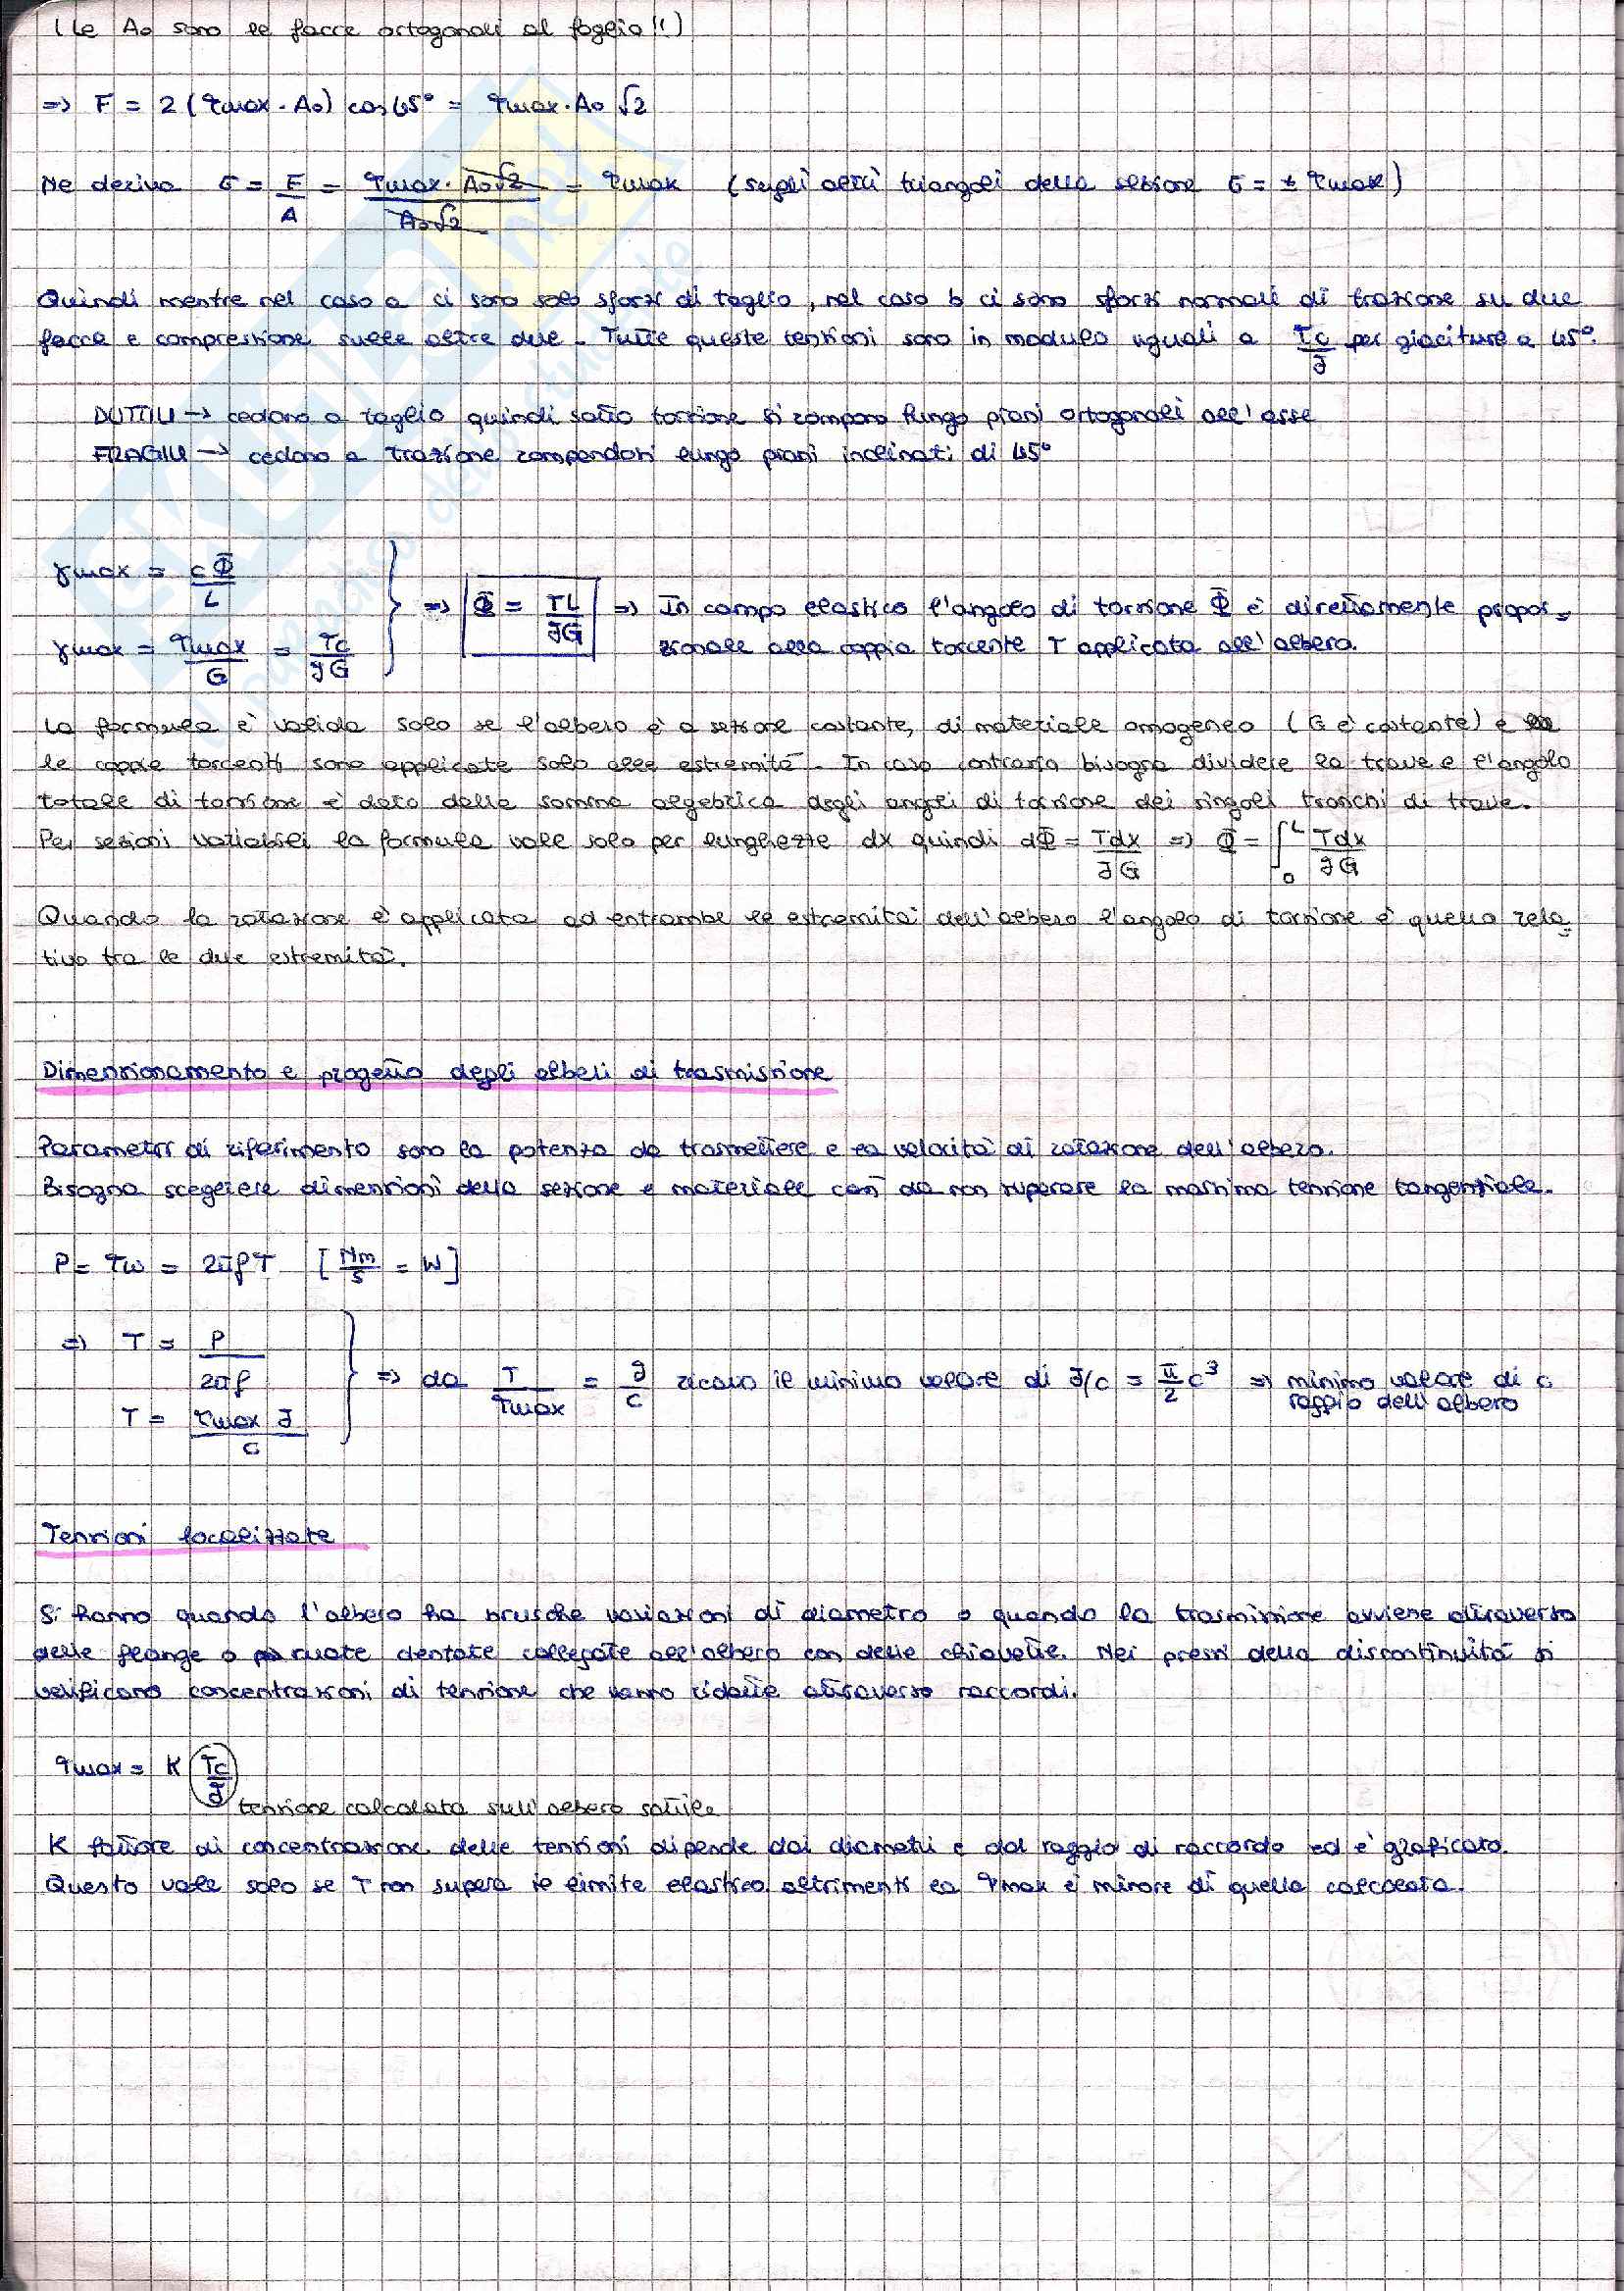 (Le A₀ sono le facce ortogonali al foglio!!)
=> F = 2 (τmax · A₀) cos 45° = τmax · A₀ √2
Ne deriva σ = F/A = τmax · A₀√2 / A₀√2 = τmax (sugli altri triangoli della sezione σ = ± τmax)
Quindi mentre nel caso a ci sono solo sforzi di taglio, nel caso b ci sono sforzi normali di trazione su due
facce e compressione sulle altre due. Tutte queste tensioni sono in modulo uguali a Tc/J per giaciture a 45°.
DUTTILI -> cedono a taglio quindi sotto torsione si rompono lungo piani ortogonali all'asse
FRAGILI -> cedono a trazione rompendosi lungo piani inclinati di 45°
γmax = cΦ/L
γmax = τmax/G = Tc/JG
=> Φ = TL/JG => In campo elastico l'angolo di torsione Φ è direttamente propor-
zionale alla coppia torcente T applicata all'albero.
La formula è valida solo se l'albero è a sezione costante, di materiale omogeneo (G è costante) e
le coppie torcenti sono applicate solo alle estremità. In caso contrario bisogna dividere la trave e l'angolo
totale di torsione è dato dalla somma algebrica degli angoli di torsione dei singoli tronchi di trave.
Per sezioni variabili la formula vale solo per lunghezze dx quindi dΦ = Tdx/JG => Φ = ∫₀ᴸ Tdx/JG
Quando la rotazione è applicata ad entrambe le estremità dell'albero l'angolo di torsione è quello rela-
tivo tra le due estremità.
Dimensionamento e progetto degli alberi di trasmissione
Parametri di riferimento sono la potenza da trasmettere e la velocità di rotazione dell'albero.
Bisogna scegliere dimensioni della sezione e materiale così da non superare la massima tensione tangenziale.
P = Tω = 2πfT [Nm/s = W]
=> T = P/2πf
T = τmax J/c
=> da T/τmax = J/c ricavo il minimo valore di J/c = π/2 c³ => minimo valore di c
raggio dell'albero
Tensioni localizzate
Si hanno quando l'albero ha brusche variazioni di diametro o quando la trasmissione avviene attraverso
delle flange o ruote dentate collegate all'albero con delle chiavette. Nei pressi della discontinuità si
verificano concentrazioni di tensione che vanno ridotte attraverso raccordi.
τmax = K Tc/J
tensione calcolata sull'albero sottile
K fattore di concentrazione delle tensioni dipende dai diametri e dal raggio di raccordo ed è graficato.
Questo vale solo se T non supera il limite elastico altrimenti la τmax è minore di quella calcolata.